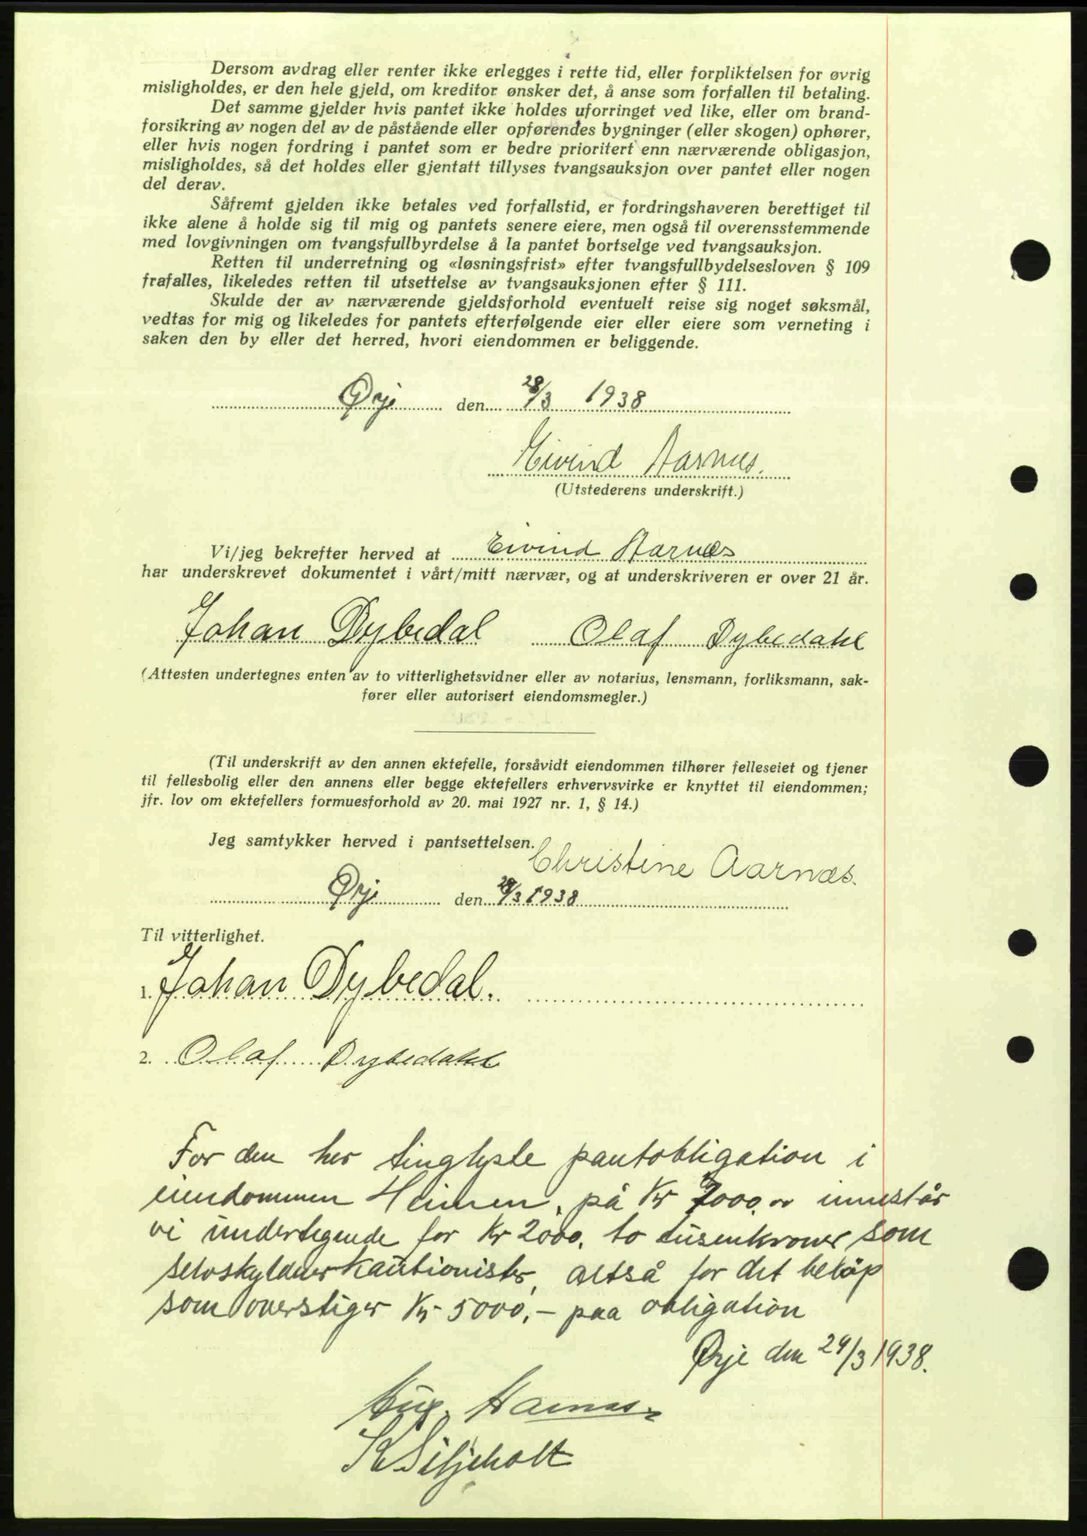 Dersom avdrag eller renter ikke erlegges i rette tid, eller forpliktelsen for øvrig
misligholdes, er den hele gjeld, om kreditor ønsker det, å anse som forfallen til betaling.
Det samme gjelder hvis pantet ikke holdes uforringet ved like, eller om brand-
forsikring av nogen del av de påstående eller opførendes bygninger (eller skogen) ophører,
eller hvis nogen fordring i pantet som er bedre prioritert enn nærværende obligasjon,
misligholdes, så det holdes eller gjentatt tillyses tvangsauksjon over pantet eller nogen
del derav.
Såfremt gjelden ikke betales ved forfallstid, er fordringshaveren berettiget til
ikke alene å holde sig til mig og pantets senere eiere, men også til overensstemmende
med lovgivningen om tvangsfullbyrdelse å la pantet bortselge ved tvangsauksjon.
Retten til underretning og «løsningsfrist» efter tvangsfullbydelsesloven § 109
frafalles, likeledes retten til utsettelse av tvangsauksjonen efter § 111.
Skulde der av nærværende gjeldsforhold eventuelt reise sig noget søksmål,
vedtas for mig og likeledes for pantets efterfølgende eier eller eiere som verneting i
saken den by eller det herred, hvori eiendommen er beliggende.
Ørje den 28/3 1938
Eivind Aarnæs.
(Utstederens underskrift.)
Vi/jeg bekrefter herved at Eivind Aarnæs
har underskrevet dokumentet i vårt/mitt nærvær, og at underskriveren er over 21 år.
Johan Dybedal Olaf Dybedahl
(Attesten undertegnes enten av to vitterlighetsvidner eller av notarius, lensmann, forliksmann, sak-
fører eller autorisert eiendomsmegler.)
(Til underskrift av den annen ektefelle, forsåvidt eiendommen tilhører felleseiet og tjener
til fellesbolig eller den annens eller begge ektefellers erhvervsvirke er knyttet til eiendommen;
jfr. lov om ektefellers formuesforhold av 20. mai 1927 nr. 1, § 14.)
Jeg samtykker herved i pantsettelsen.
Christine Aarnæs.
Ørje den 28/3 1938
Til vitterlighet.
1. Johan Dybedal.
2. Olaf Dybedahl
For den her tinglyste pantobligation i
eiendommen Heimen, på Kr 7000, innestår
vi undertegnede for Kr 2000, to tusenkroner som
selvskyldnerkautionister, altså for det beløp
som overstiger Kr 5000,- paa obligation
Ørje den 29/3 1938.
Aug. Aarnæs
K Siljeholt